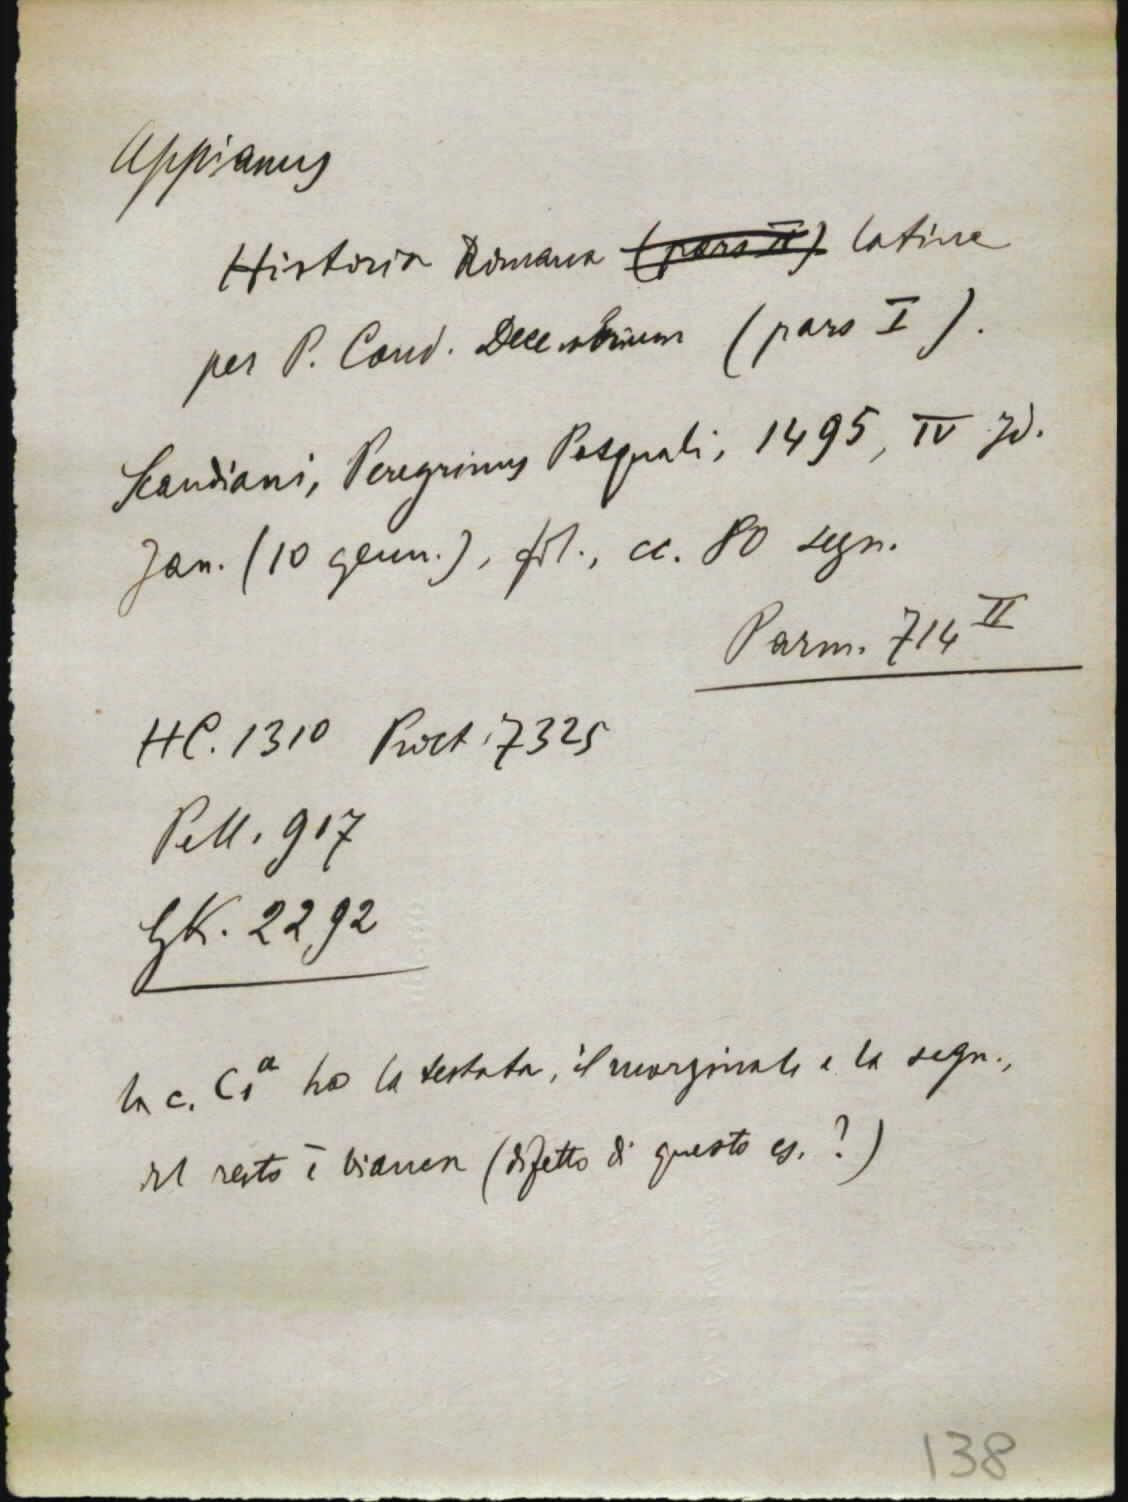 Appianus
Historia Romana (pars II) latine
per P. Cand. Decembrium (pars I).
Scandiani, Peregrinus Pasquali, 1495, IV Id.
Jan. (10 genn.), fol., cc. 80 segn.
Parm. 714 II
HC. 1310 Proct. 7325
Pell. 917
GK. 2292
la c. C1a ha la testata, il marginale e la segn.,
del resto è bianca (difetto di questo es. ?)
138